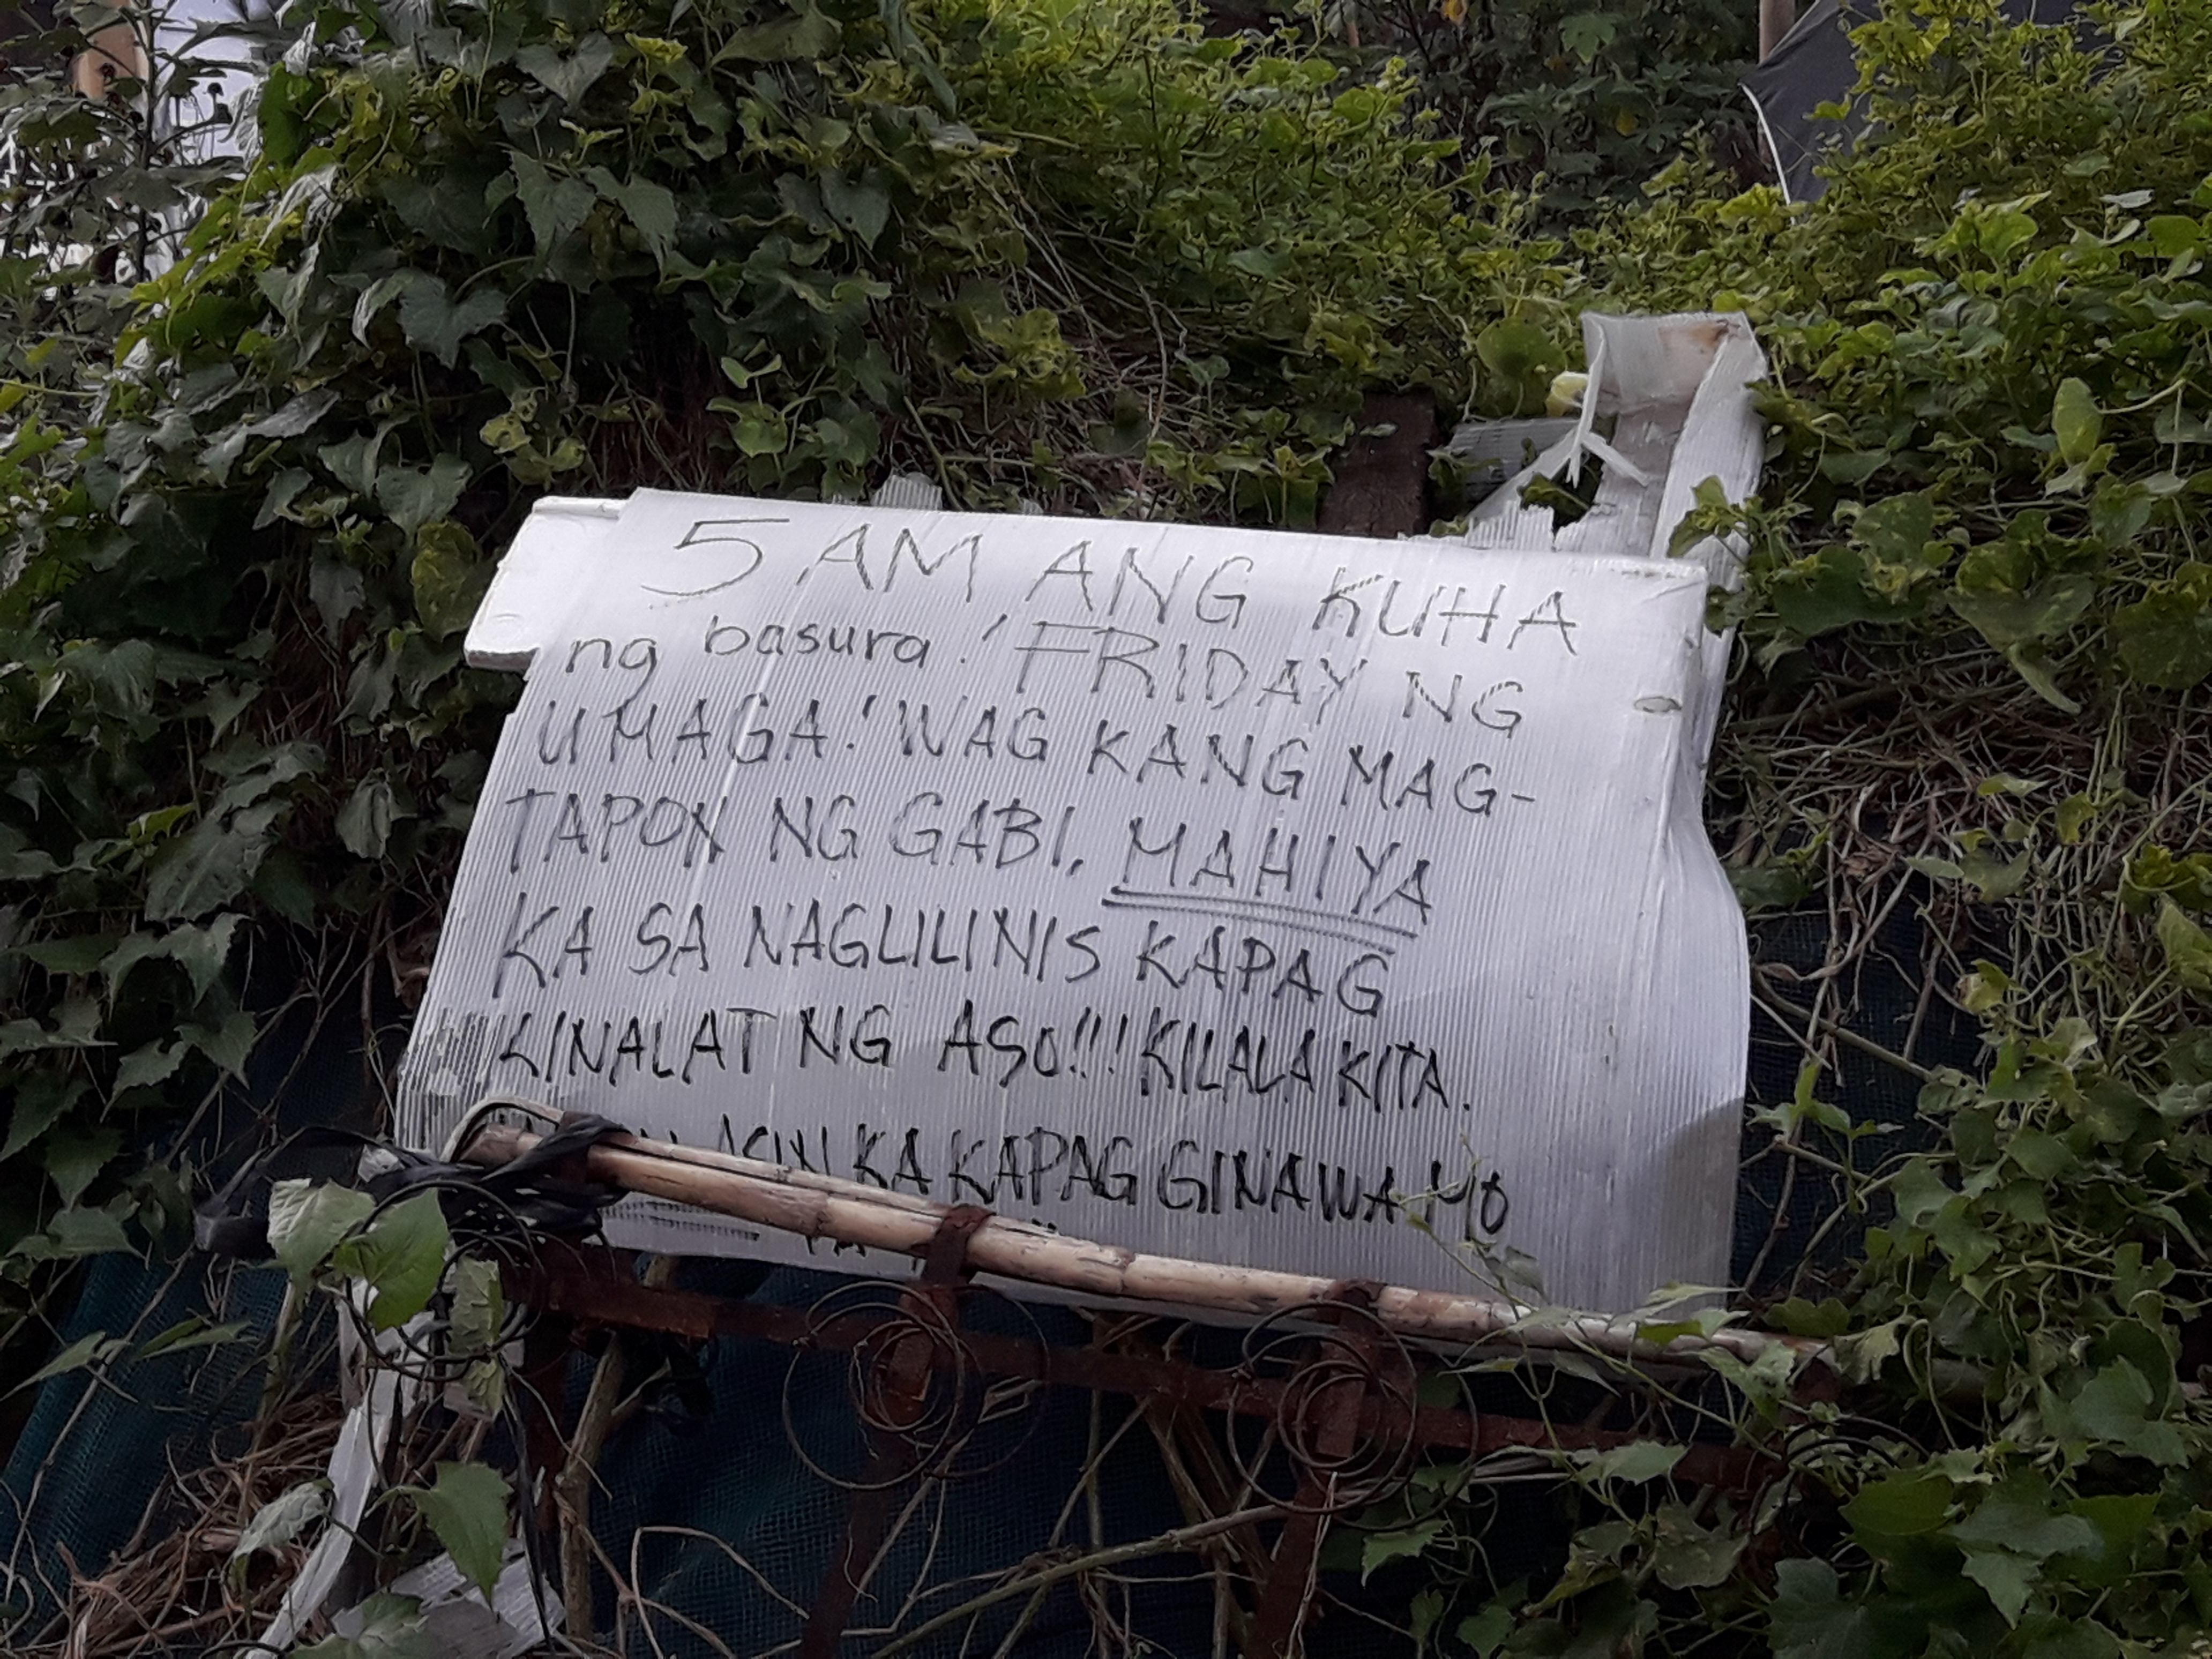 5 AM ANG KUHA
ng basura! FRIDAY NG
UMAGA! 'WAG KANG MAG-
TAPON NG GABI, MAHIYA
KA SA NAGLILINIS KAPAG
KINALAT NG ASO!!! KILALA KITA.
KA KAPAG GINAWA MO